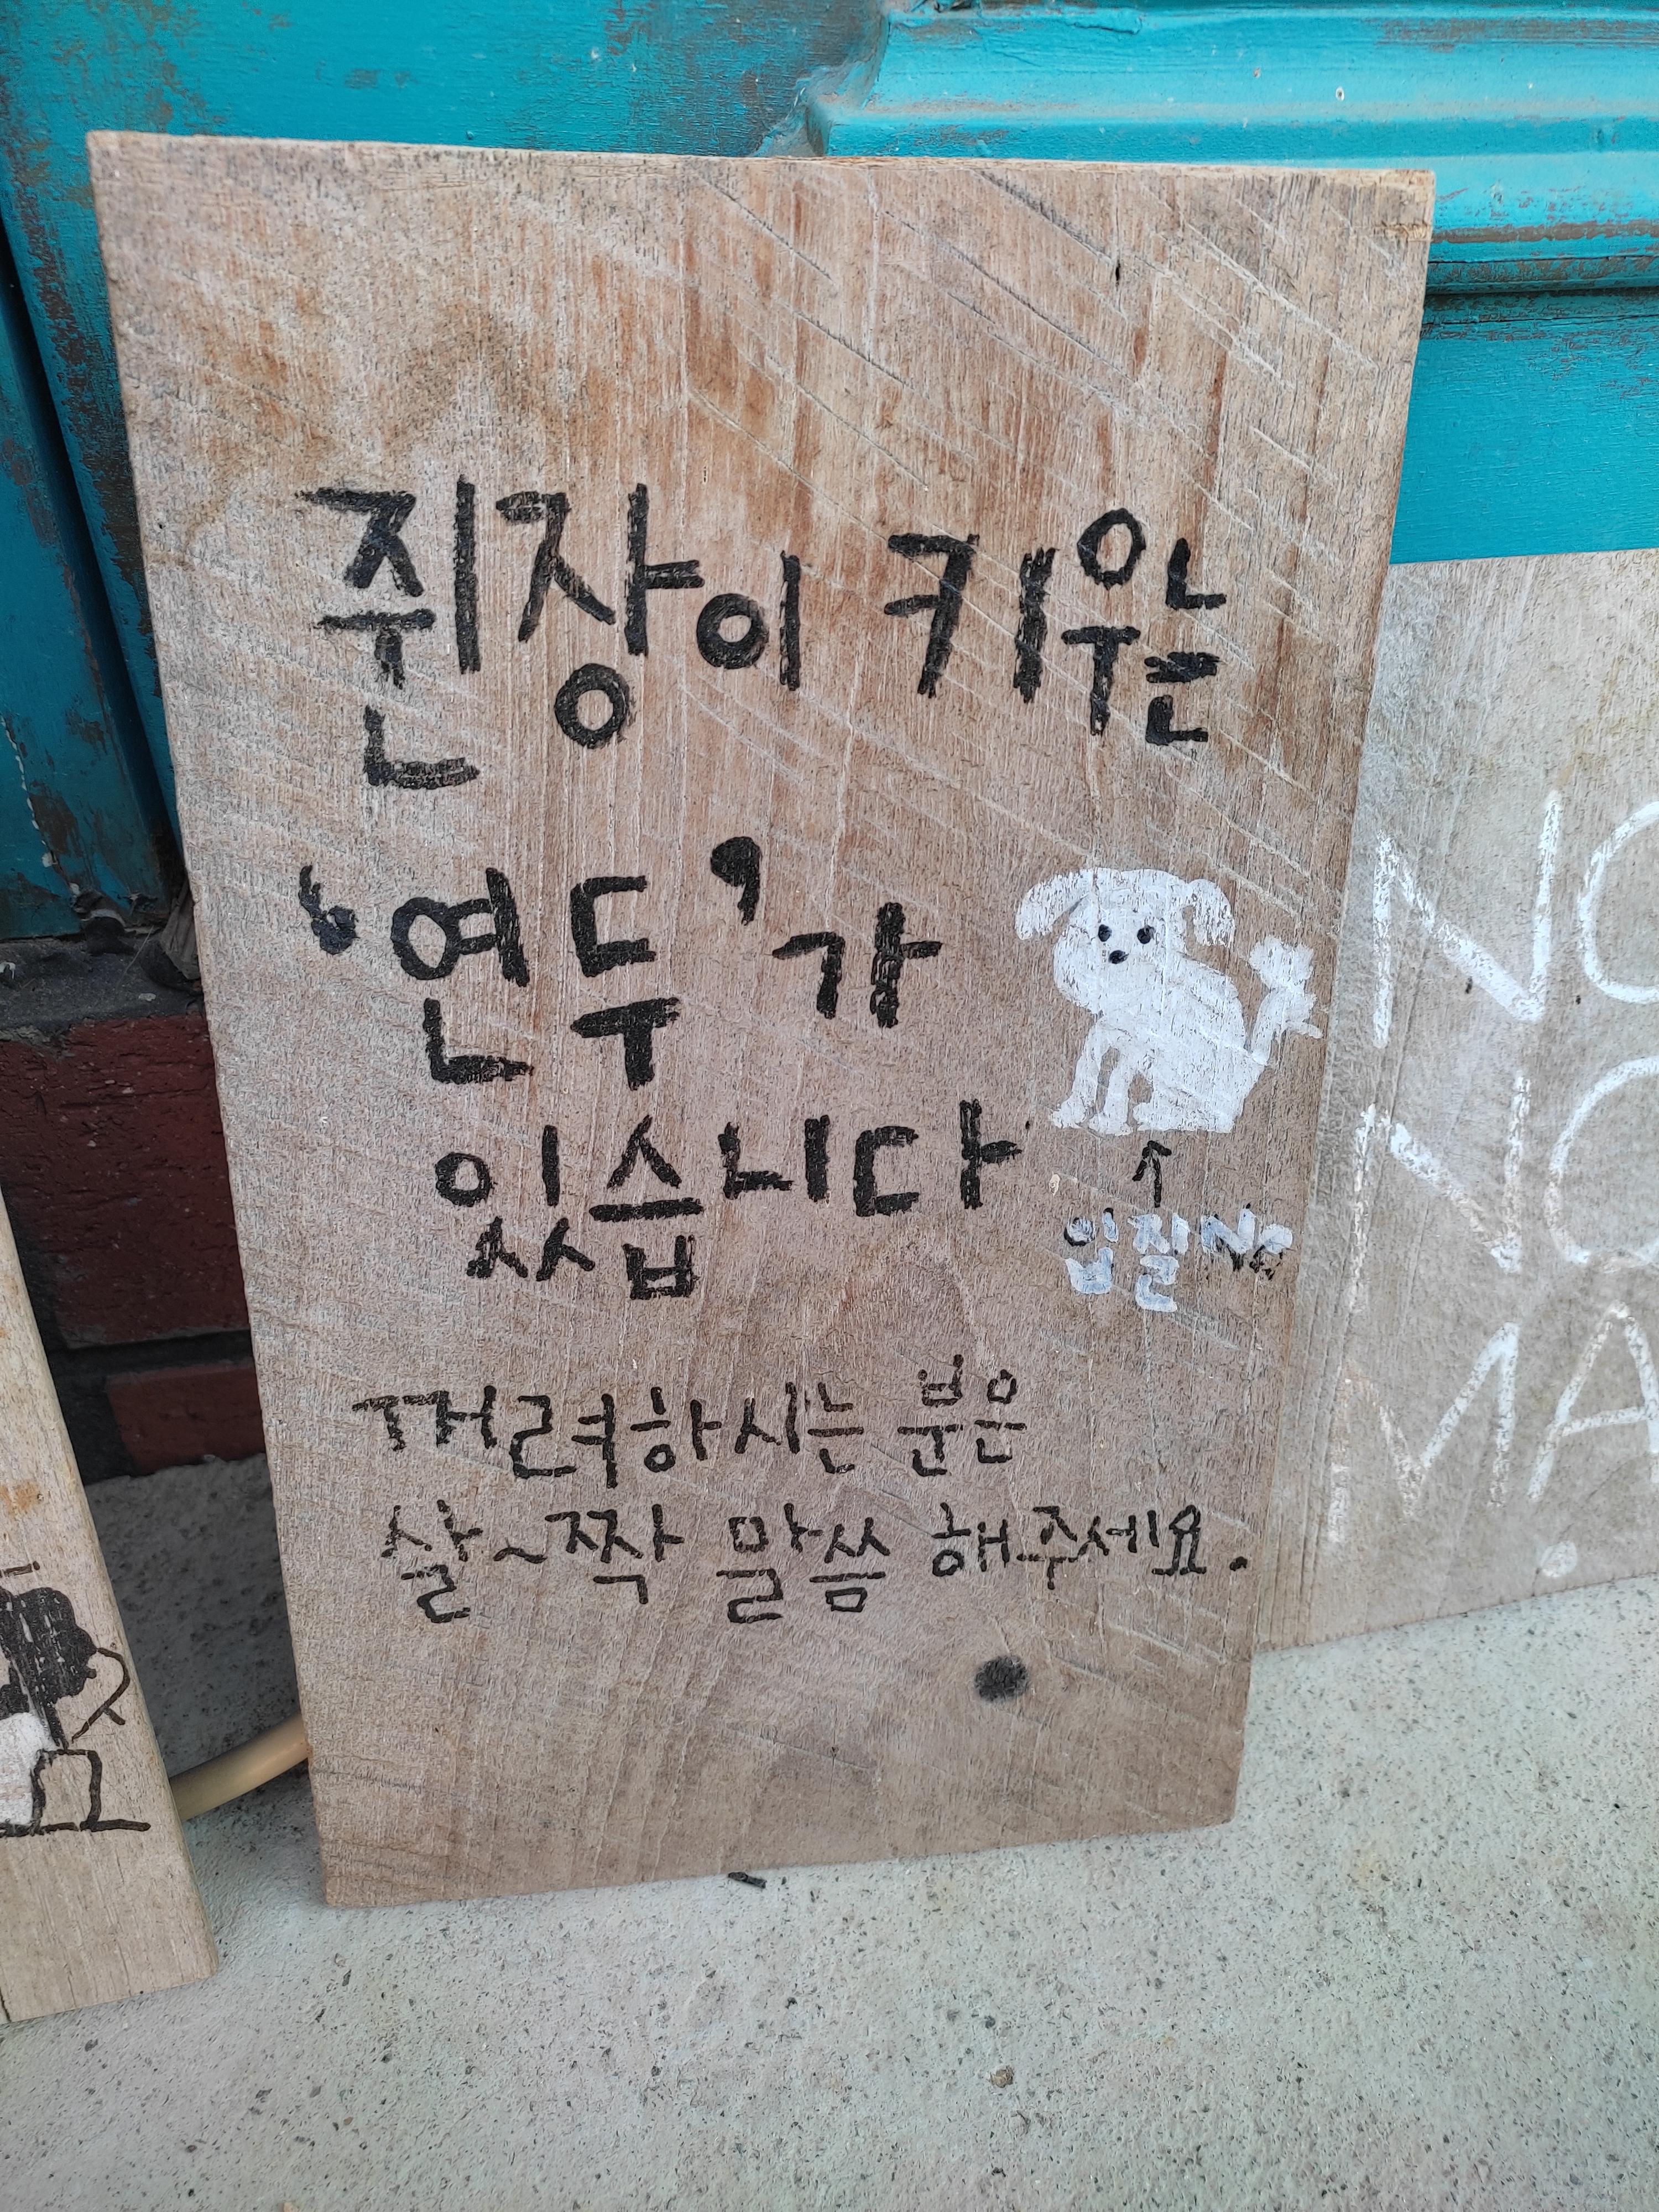 쥔장이 키우는
'연두'가
있습니다
입질 No
꺼려하시는 분은
살~짝 말씀 해주세요.
NO
NO
MA